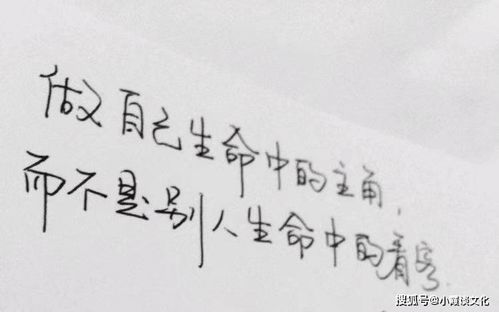 做自己生命中的主角,
而不是别人生命中的看客.
搜狐号@小霞谈文化